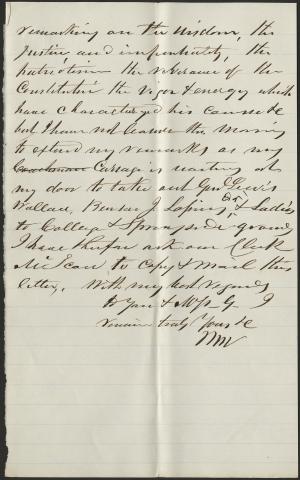 remarking on the wisdom, the
Justice and impartiality, the
patriotism the reverance of the
Constitution the vigor & energy which
have characterized his course &c
but I have not leasure this morning
to extend my remarks as my
Coachman Carriage is waiting at
my door to take out Genl Lewis
Wallace, Benson J Losing & Ladies
to College & Springside grounds
I have therefore ask our Clerk
to Copy & Mail this
letter. With my best regards
to you & I
remain truly Yours &c
MV